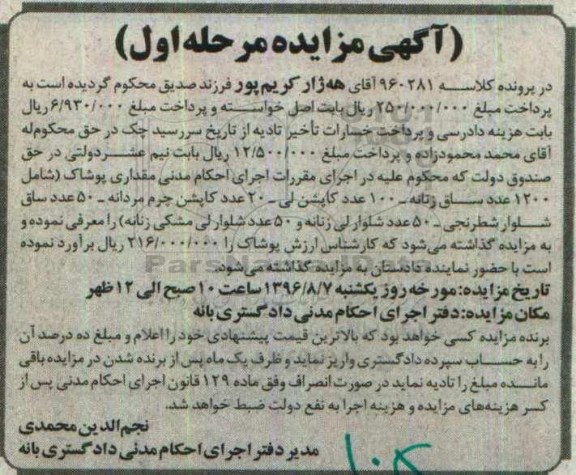 (آگهی مزایده مرحله اول)
در پرونده کلاسه ۹۶۰۲۸۱ آقای هه ژار کریم پور فرزند صدیق محکوم گردیده است به
پرداخت مبلغ ۲۵۰/۰۰۰/۰۰۰ ریال بابت اصل خواسته و پرداخت مبلغ ۶/۹۳۰/۰۰۰ ریال
بابت هزینه دادرسی و پرداخت خسارات تأخیر تادیه از تاریخ سررسید چک در حق محکوم‌له
آقای محمد محمودزاده و پرداخت مبلغ ۱۲/۵۰۰/۰۰۰ ریال بابت نیم عشر دولتی در حق
صندوق دولت که محکوم علیه در اجرای مقررات اجرای احکام مدنی مقداری پوشاک (شامل
۱۲۰۰ عدد ساق زنانه ـ ۱۰۰ عدد کاپشن لی ـ ۲۰ عدد کاپشن چرم مردانه ـ ۵۰ عدد ساق
شلوار شطرنجی ـ ۵۰ عدد شلوار لی زنانه و ۵۰ عدد شلوار لی مشکی زنانه) را معرفی نموده و
به مزایده گذاشته می‌شود که کارشناس ارزش پوشاک را ۲۱۶/۰۰۰/۰۰۰ ریال برآورد نموده
است با حضور نماینده دادستان به مزایده گذاشته می‌شود.
تاریخ مزایده: مورخه روز یکشنبه ۱۳۹۶/۸/۷ ساعت ۱۰ صبح الی ۱۲ ظهر
مکان مزایده: دفتر اجرای احکام مدنی دادگستری بانه
برنده مزایده کسی خواهد بود که بالاترین قیمت پیشنهادی خود را اعلام و مبلغ ده درصد آن
را به حساب سپرده دادگستری واریز نماید و ظرف یک ماه پس از برنده شدن در مزایده باقی
مانده مبلغ را تادیه نماید در صورت انصراف وفق ماده ۱۲۹ قانون اجرای احکام مدنی پس از
کسر هزینه‌های مزایده و هزینه اجرا به نفع دولت ضبط خواهد شد.
نجم الدین محمدی
مدیر دفتر اجرای احکام مدنی دادگستری بانه